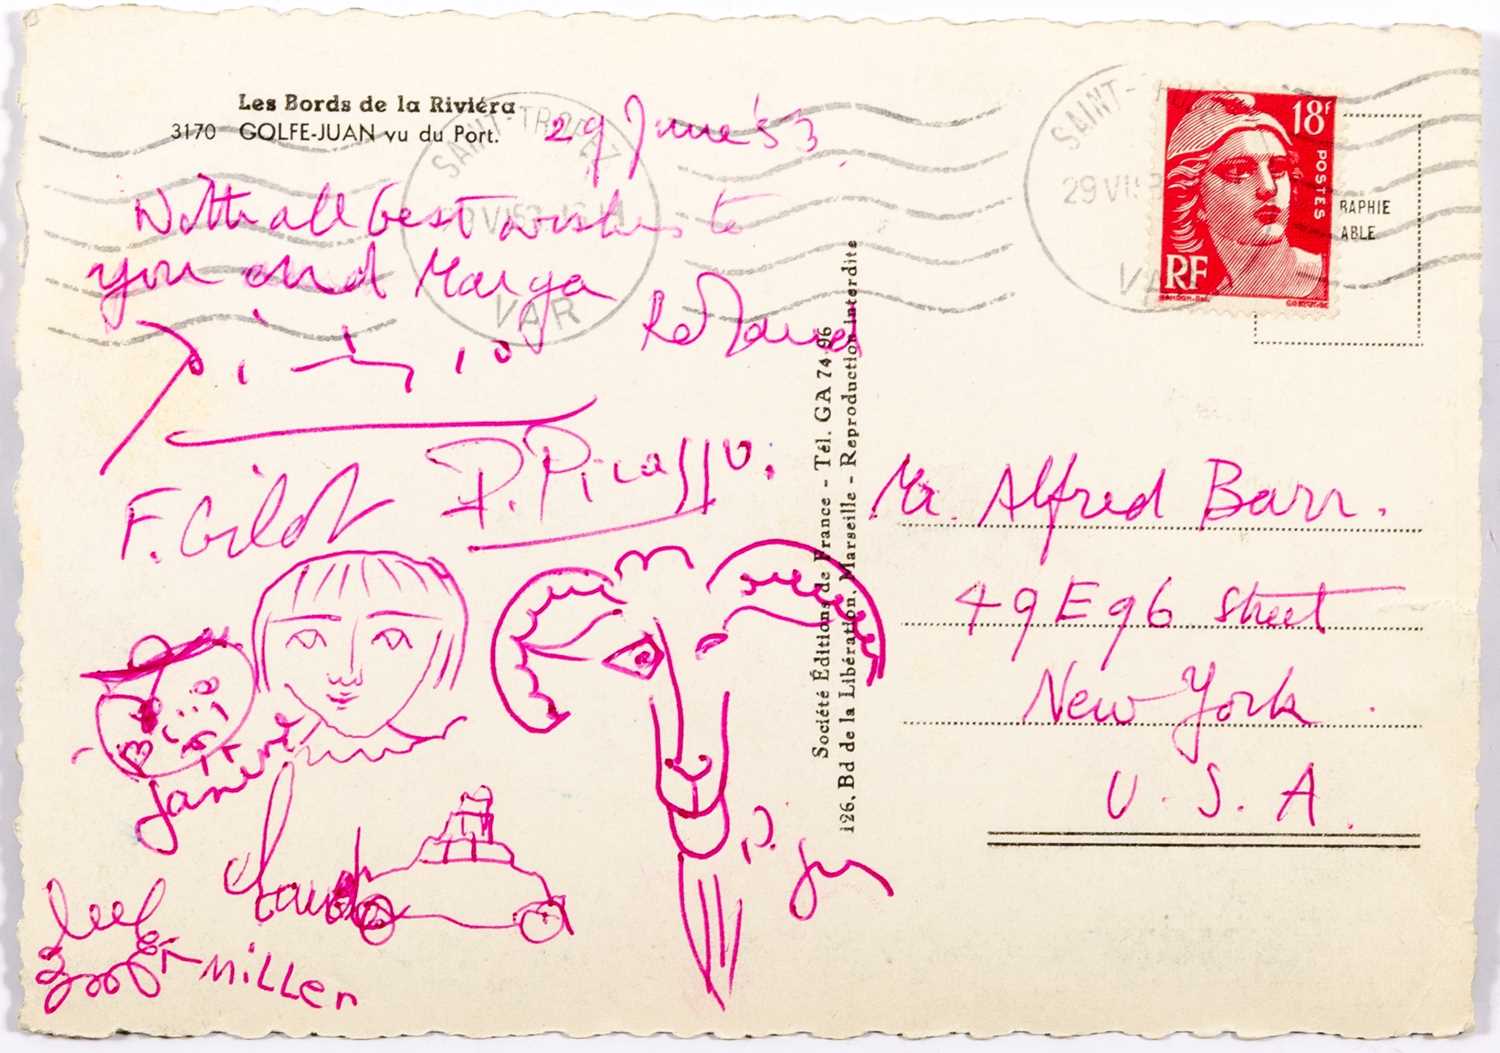 Les Bords de la Riviéra
3170 GOLFE-JUAN vu du Port.
29 June '53
With all best wishes to
you and Marga
Roland
Picasso
F. Gilot P. Picasso.
Janine
Claude
Miller
SAINT-TROPEZ
VAR
Société Éditions de France - Tél. GA 74-96
126, Bd de la Libération, Marseille - Reproduction interdite
SAINT-
29 VI
VA
18F
POSTES
RF
RAPHIE
ABLE
Mr. Alfred Barr.
49 E 96 Street
New York.
U.S.A.